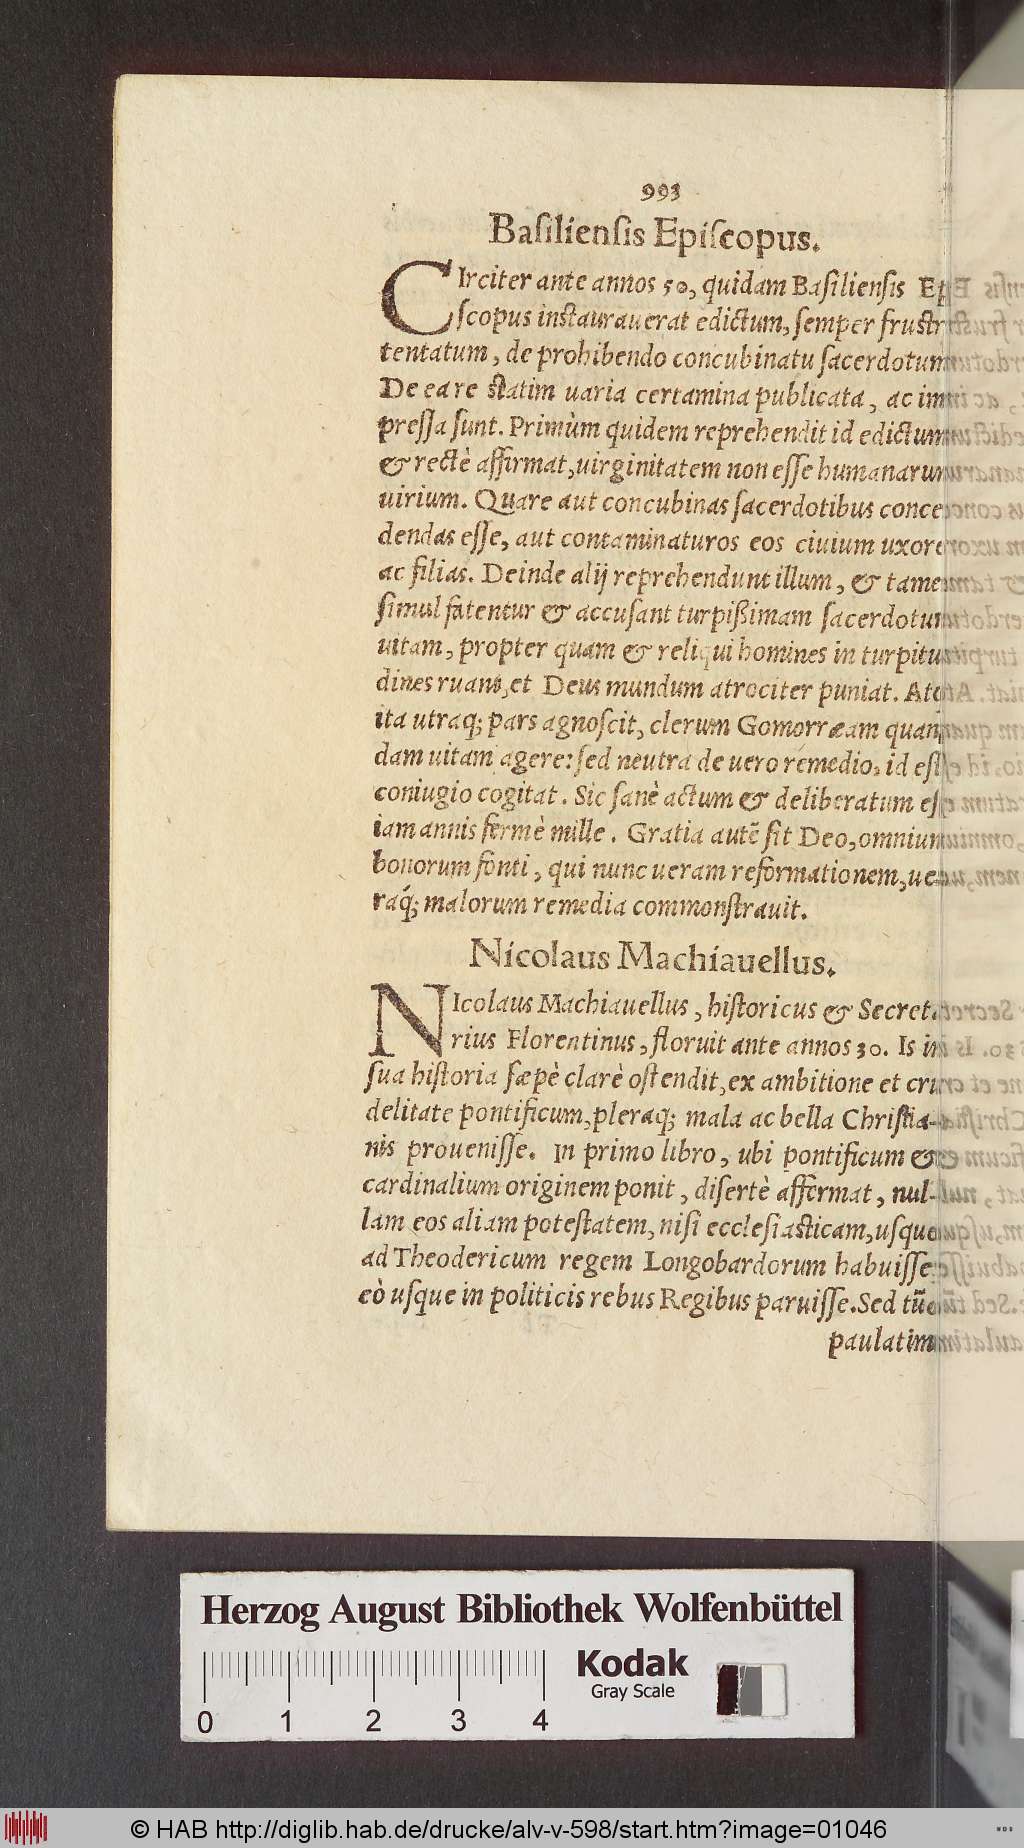 993
Basiliensis Episcopus.
CIrciter ante annos 50, quidam Basiliensis Epi
scopus instaurauerat edictum, semper frustra
tentatum, de prohibendo concubinatu sacerdotum
De ea re statim uaria certamina publicata, ac im
pressa sunt. Primùm quidem reprehendit id edictum
& rectè affirmat, uirginitatem non esse humanarum
uirium. Quare aut concubinas sacerdotibus conce
dendas esse, aut contaminaturos eos ciuium uxores
ac filias. Deinde alij reprehendunt illum, & tamen
simul fatentur & accusant turpißimam sacerdotum
uitam, propter quam & reliqui homines in turpitu
dines ruant, et Deus mundum atrociter puniat. Atq;
ita utraq; pars agnoscit, clerum Gomorræam quan
dam uitam agere: sed neutra de uero remedio, id est
coniugio cogitat. Sic sanè actum & deliberatum est
iam annis fermè mille. Gratia autẽ sit Deo, omnium
bonorum fonti, qui nunc ueram reformationem, ue
raq́; malorum remedia commonstrauit.
Nicolaus Machiauellus.
NIcolaus Machiauellus, historicus & Secreta
rius Florentinus, floruit ante annos 30. Is in
sua historia sæpè clarè ostendit, ex ambitione et cru
delitate pontificum, pleraq; mala ac bella Christia-
nis prouenisse. In primo libro, ubi pontificum &
cardinalium originem ponit, disertè affirmat, nul-
lam eos aliam potestatem, nisi ecclesiasticam, usque
ad Theodericum regem Longobardorum habuisse:
eò usque in politicis rebus Regibus paruisse. Sed tũc
paulatim
Herzog August Bibliothek Wolfenbüttel
Kodak
Gray Scale
0 1 2 3 4
© HAB http://diglib.hab.de/drucke/alv-v-598/start.htm?image=01046